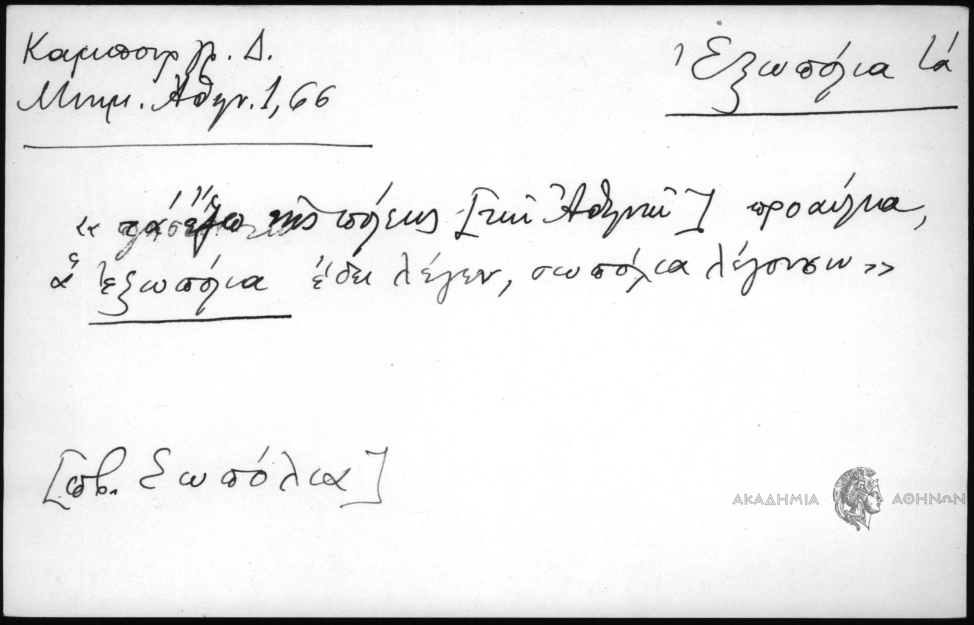 Καμπουρ γλ. Δ.
Μνημ. Ἀθην. 1, 66
Ἐξωπόλια τά
« τὰ ἔξω τῆς πόλεως [τῶν Ἀθηνῶν] προαύλια,
ἃ ἐξωπόλια ἔδει λέγειν, ξωπόλια λέγουσιν »
[πβ. Ξωπόλια]
ΑΚΑΔΗΜΙΑ ΑΘΗΝΩΝ